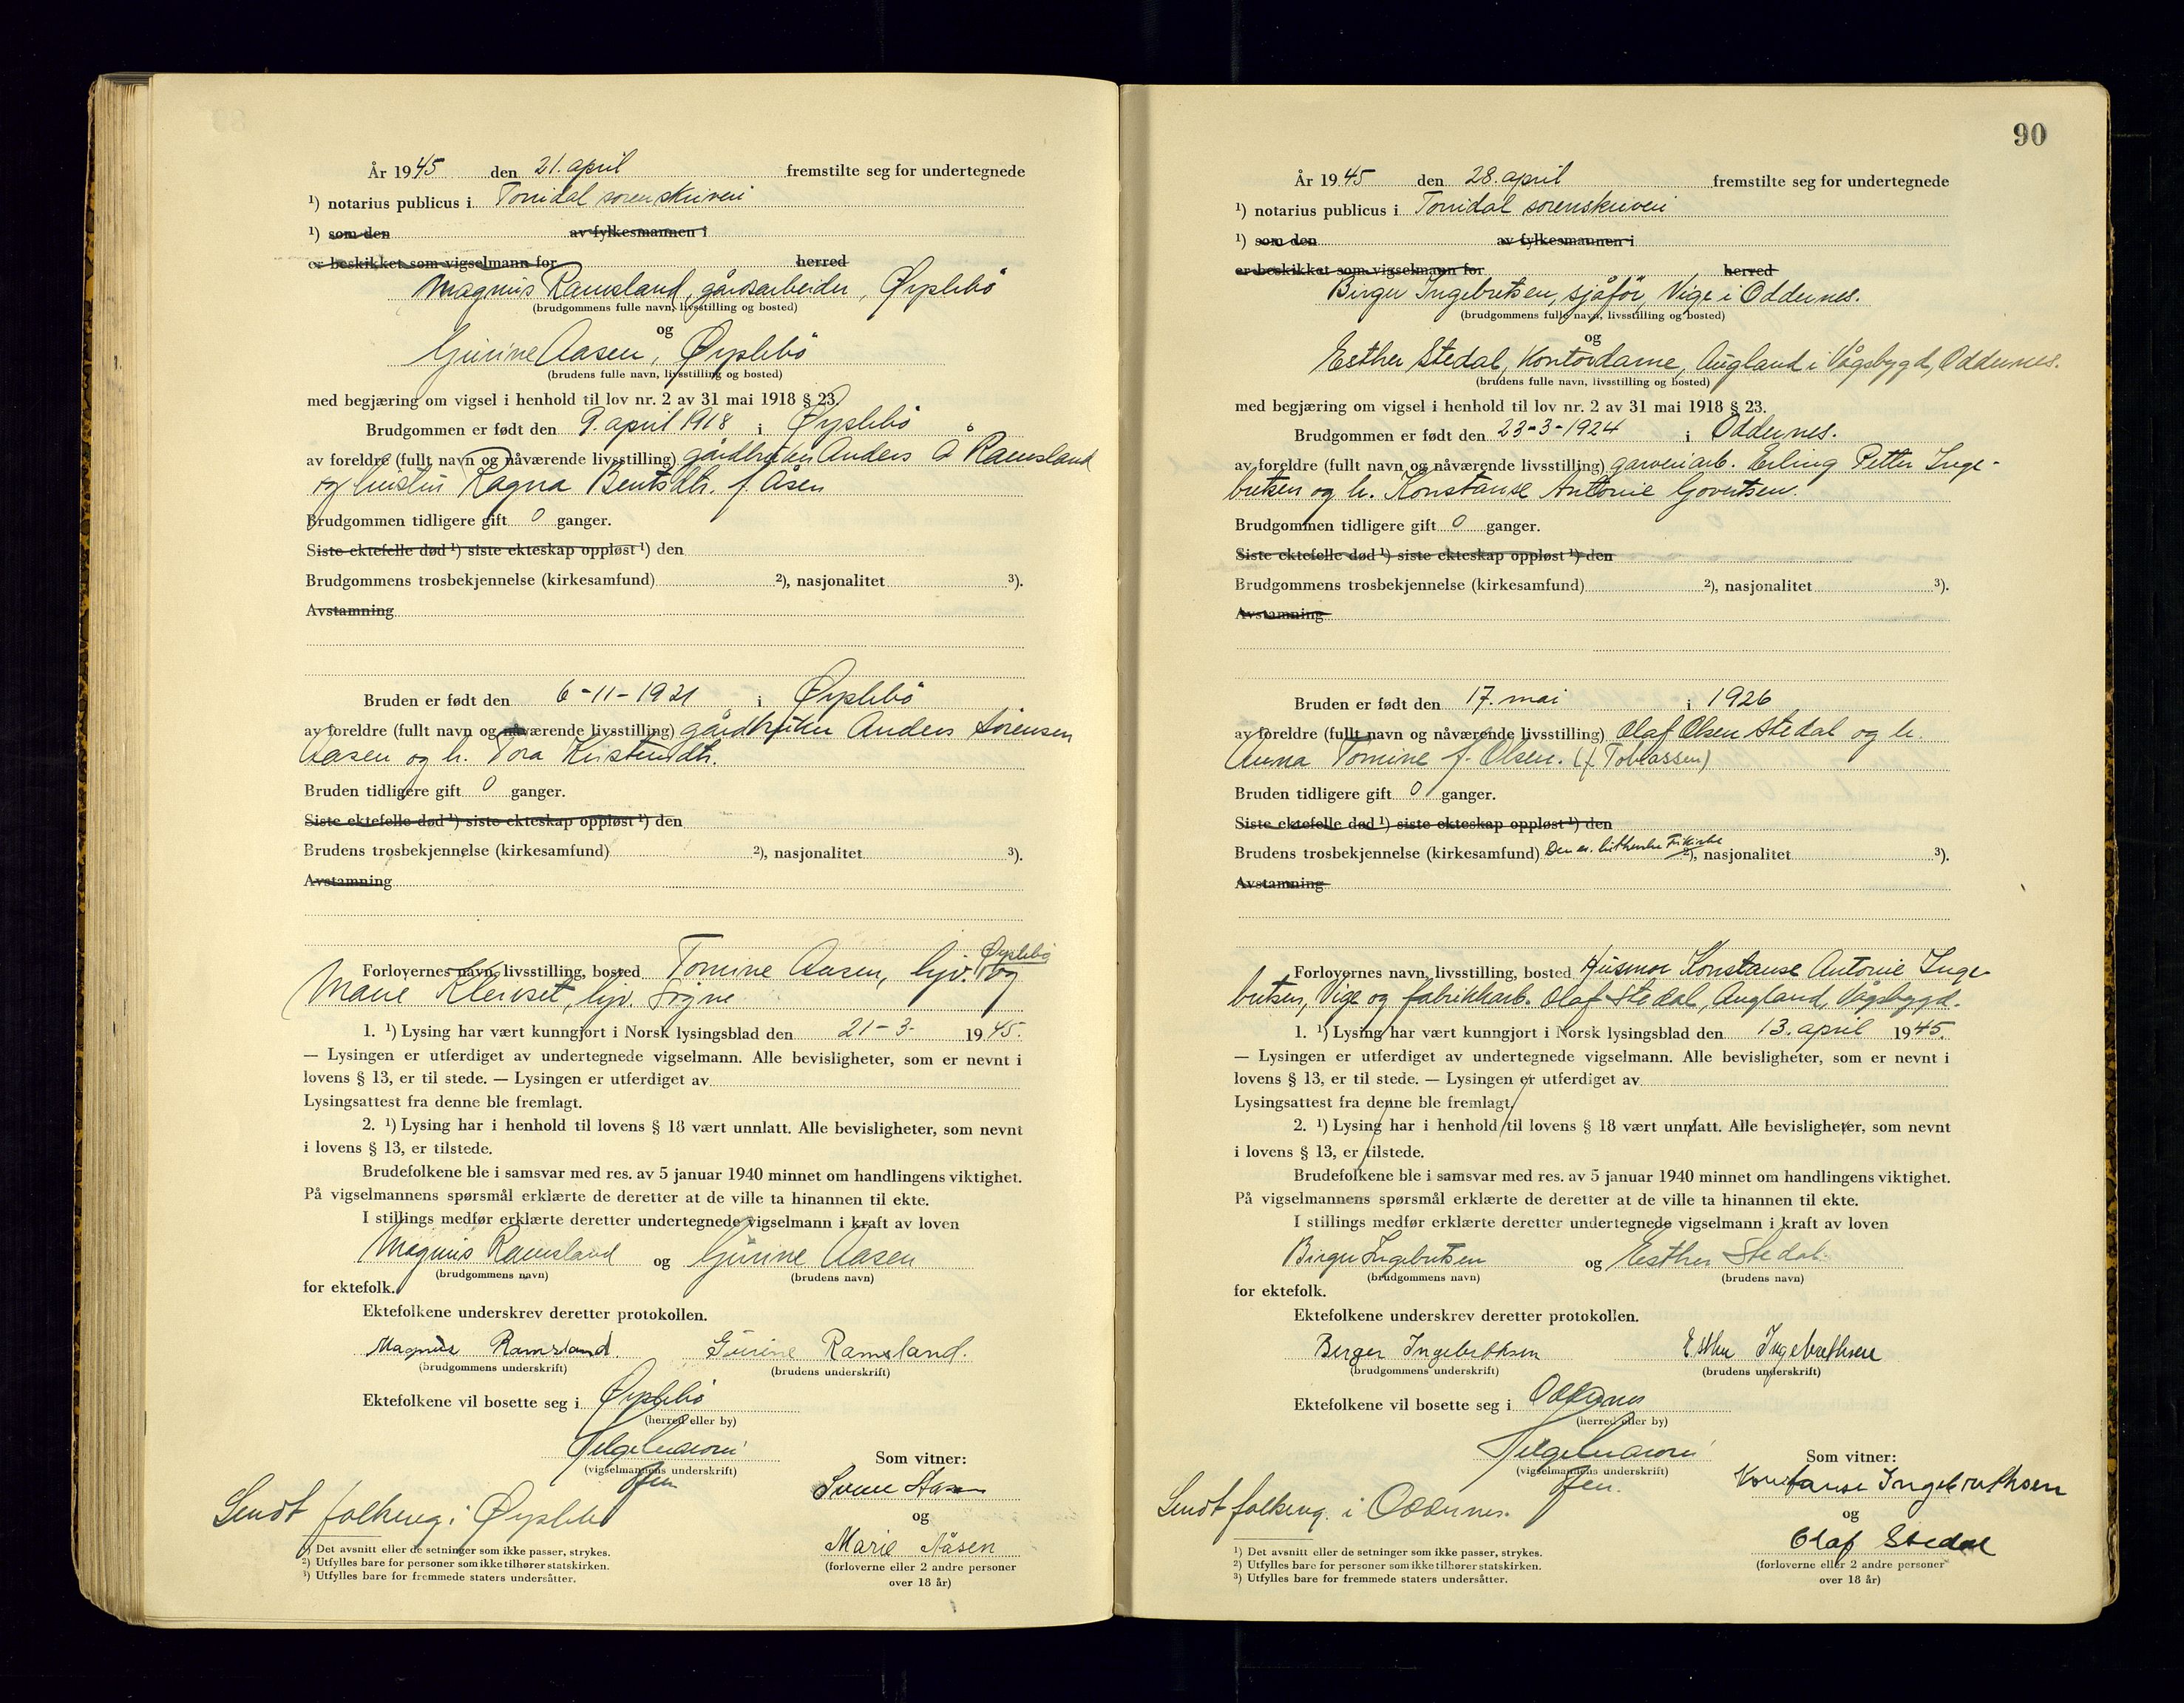 År 1945 den 21. april fremstilte seg for undertegnede
¹) notarius publicus i Torridal sorenskriveri
¹) som den av fylkesmannen i
er beskikket som vigselmann for herred
Magnus Ramsland, gårdsarbeider, Øyslebö
(brudgommens fulle navn, livsstilling og bosted)
og
Gurine Aasen, Øyslebö
(brudens fulle navn, livsstilling og bosted)
med begjæring om vigsel i henhold til lov nr. 2 av 31 mai 1918 § 23.
Brudgommen er født den 9. april 1918 i Øyslebö
av foreldre (fullt navn og nåværende livsstilling) gårdbruker Anders Å Ramsland
og hustru Ragna Bentsdtr. f. Åsen
Brudgommen tidligere gift 0 ganger.
Siste ektefelle død ¹) siste ekteskap oppløst ¹) den
Brudgommens trosbekjennelse (kirkesamfund) ²), nasjonalitet ³).
Avstamning
Bruden er født den 6-11-1921 i Øyslebö
av foreldre (fullt navn og nåværende livsstilling) gårdbruker Anders Sörensen
Aasen og h. Tora Kristensdtr.
Bruden tidligere gift 0 ganger.
Siste ektefelle død ¹) siste ekteskap oppløst ¹) den
Brudens trosbekjennelse (kirkesamfund) ²), nasjonalitet ³).
Avstamning
Øyslebö
Forlovernes navn, livsstilling, bosted Tomine Aasen, hjv. og
Marie Kleveset, hjv. Sögne
1. ¹) Lysing har vært kunngjort i Norsk lysingsblad den 21-3- 1945.
— Lysingen er utferdiget av undertegnede vigselmann. Alle bevisligheter, som er nevnt i
lovens § 13, er til stede. — Lysingen er utferdiget av
Lysingsattest fra denne ble fremlagt.
2. ¹) Lysing har i henhold til lovens § 18 vært unnlatt. Alle bevisligheter, som nevnt
i lovens § 13, er tilstede.
Brudefolkene ble i samsvar med res. av 5 januar 1940 minnet om handlingens viktighet.
På vigselmannens spørsmål erklærte de deretter at de ville ta hinannen til ekte.
I stillings medfør erklærte deretter undertegnede vigselmann i kraft av loven
Magnus Ramsland og Gurine Aasen
(brudgommens navn) (brudens navn)
for ektefolk.
Ektefolkene underskrev deretter protokollen.
Magnus Ramsland. Gurine Ramsland.
(brudgommens underskrift) (brudens underskrift)
Ektefolkene vil bosette seg i Øyslebö
(herred eller by)
(vigselmannens underskrift)
Som vitner:
Marie Aasen
og
Sendt folkereg. i Øyslebö
(forloverne eller 2 andre personer
over 18 år)
¹) Det avsnitt eller de setninger som ikke passer, strykes.
²) Utfylles bare for personer som ikke tilhører statskirken.
³) Utfylles bare for fremmede staters undersåtter.
90
År 1945 den 28. april fremstilte seg for undertegnede
¹) notarius publicus i Torridal sorenskriveri
¹) som den av fylkesmannen i
er beskikket som vigselmann for herred
Birger Ingebretsen, sjåför, Vige i Oddernes.
(brudgommens fulle navn, livsstilling og bosted)
og
Esther Stedal, kontordame, Augland i Vågsbygd, Oddernes.
(brudens fulle navn, livsstilling og bosted)
med begjæring om vigsel i henhold til lov nr. 2 av 31 mai 1918 § 23.
Brudgommen er født den 23-3-1924 i Oddernes.
av foreldre (fullt navn og nåværende livsstilling) garveriarb. Erling Petter Inge-
bretsen og h. Konstanse Antonie Govertsen.
Brudgommen tidligere gift 0 ganger.
Siste ektefelle død ¹) siste ekteskap oppløst ¹) den
Brudgommens trosbekjennelse (kirkesamfund) ²), nasjonalitet ³).
Avstamning
Bruden er født den 17. mai i 1926
av foreldre (fullt navn og nåværende livsstilling) Olaf Olsen Stedal og h.
Anna Tomine f. Olsen. (f. Tobiassen)
Bruden tidligere gift 0 ganger.
Siste ektefelle død ¹) siste ekteskap oppløst ¹) den
Brudens trosbekjennelse (kirkesamfund) Den ev. lutherske Frikirke ²), nasjonalitet ³).
Avstamning
Forlovernes navn, livsstilling, bosted Husmor Konstanse Antonie Inge-
bretsen, Vige og fabrikkarb. Olaf Stedal, Augland, Vågsbygd.
1. ¹) Lysing har vært kunngjort i Norsk lysingsblad den 13. april 1945.
— Lysingen er utferdiget av undertegnede vigselmann. Alle bevisligheter, som er nevnt i
lovens § 13, er til stede. — Lysingen er utferdiget av
Lysingsattest fra denne ble fremlagt.
2. ¹) Lysing har i henhold til lovens § 18 vært unnlatt. Alle bevisligheter, som nevnt
i lovens § 13, er tilstede.
Brudefolkene ble i samsvar med res. av 5 januar 1940 minnet om handlingens viktighet.
På vigselmannens spørsmål erklærte de deretter at de ville ta hinannen til ekte.
I stillings medfør erklærte deretter undertegnede vigselmann i kraft av loven
Birger Ingebretsen og Esther Stedal.
(brudgommens navn) (brudens navn)
for ektefolk.
Ektefolkene underskrev deretter protokollen.
Birger Ingebrethsen Esther Ingebrethsen
(brudgommens underskrift) (brudens underskrift)
Ektefolkene vil bosette seg i Oddernes
(herred eller by)
(vigselmannens underskrift)
Som vitner:
Konstanse Ingebrethsen
og
Olaf Stedal
Sendt folkereg. i Oddernes.
(forloverne eller 2 andre personer
over 18 år)
¹) Det avsnitt eller de setninger som ikke passer, strykes.
²) Utfylles bare for personer som ikke tilhører statskirken.
³) Utfylles bare for fremmede staters undersåtter.